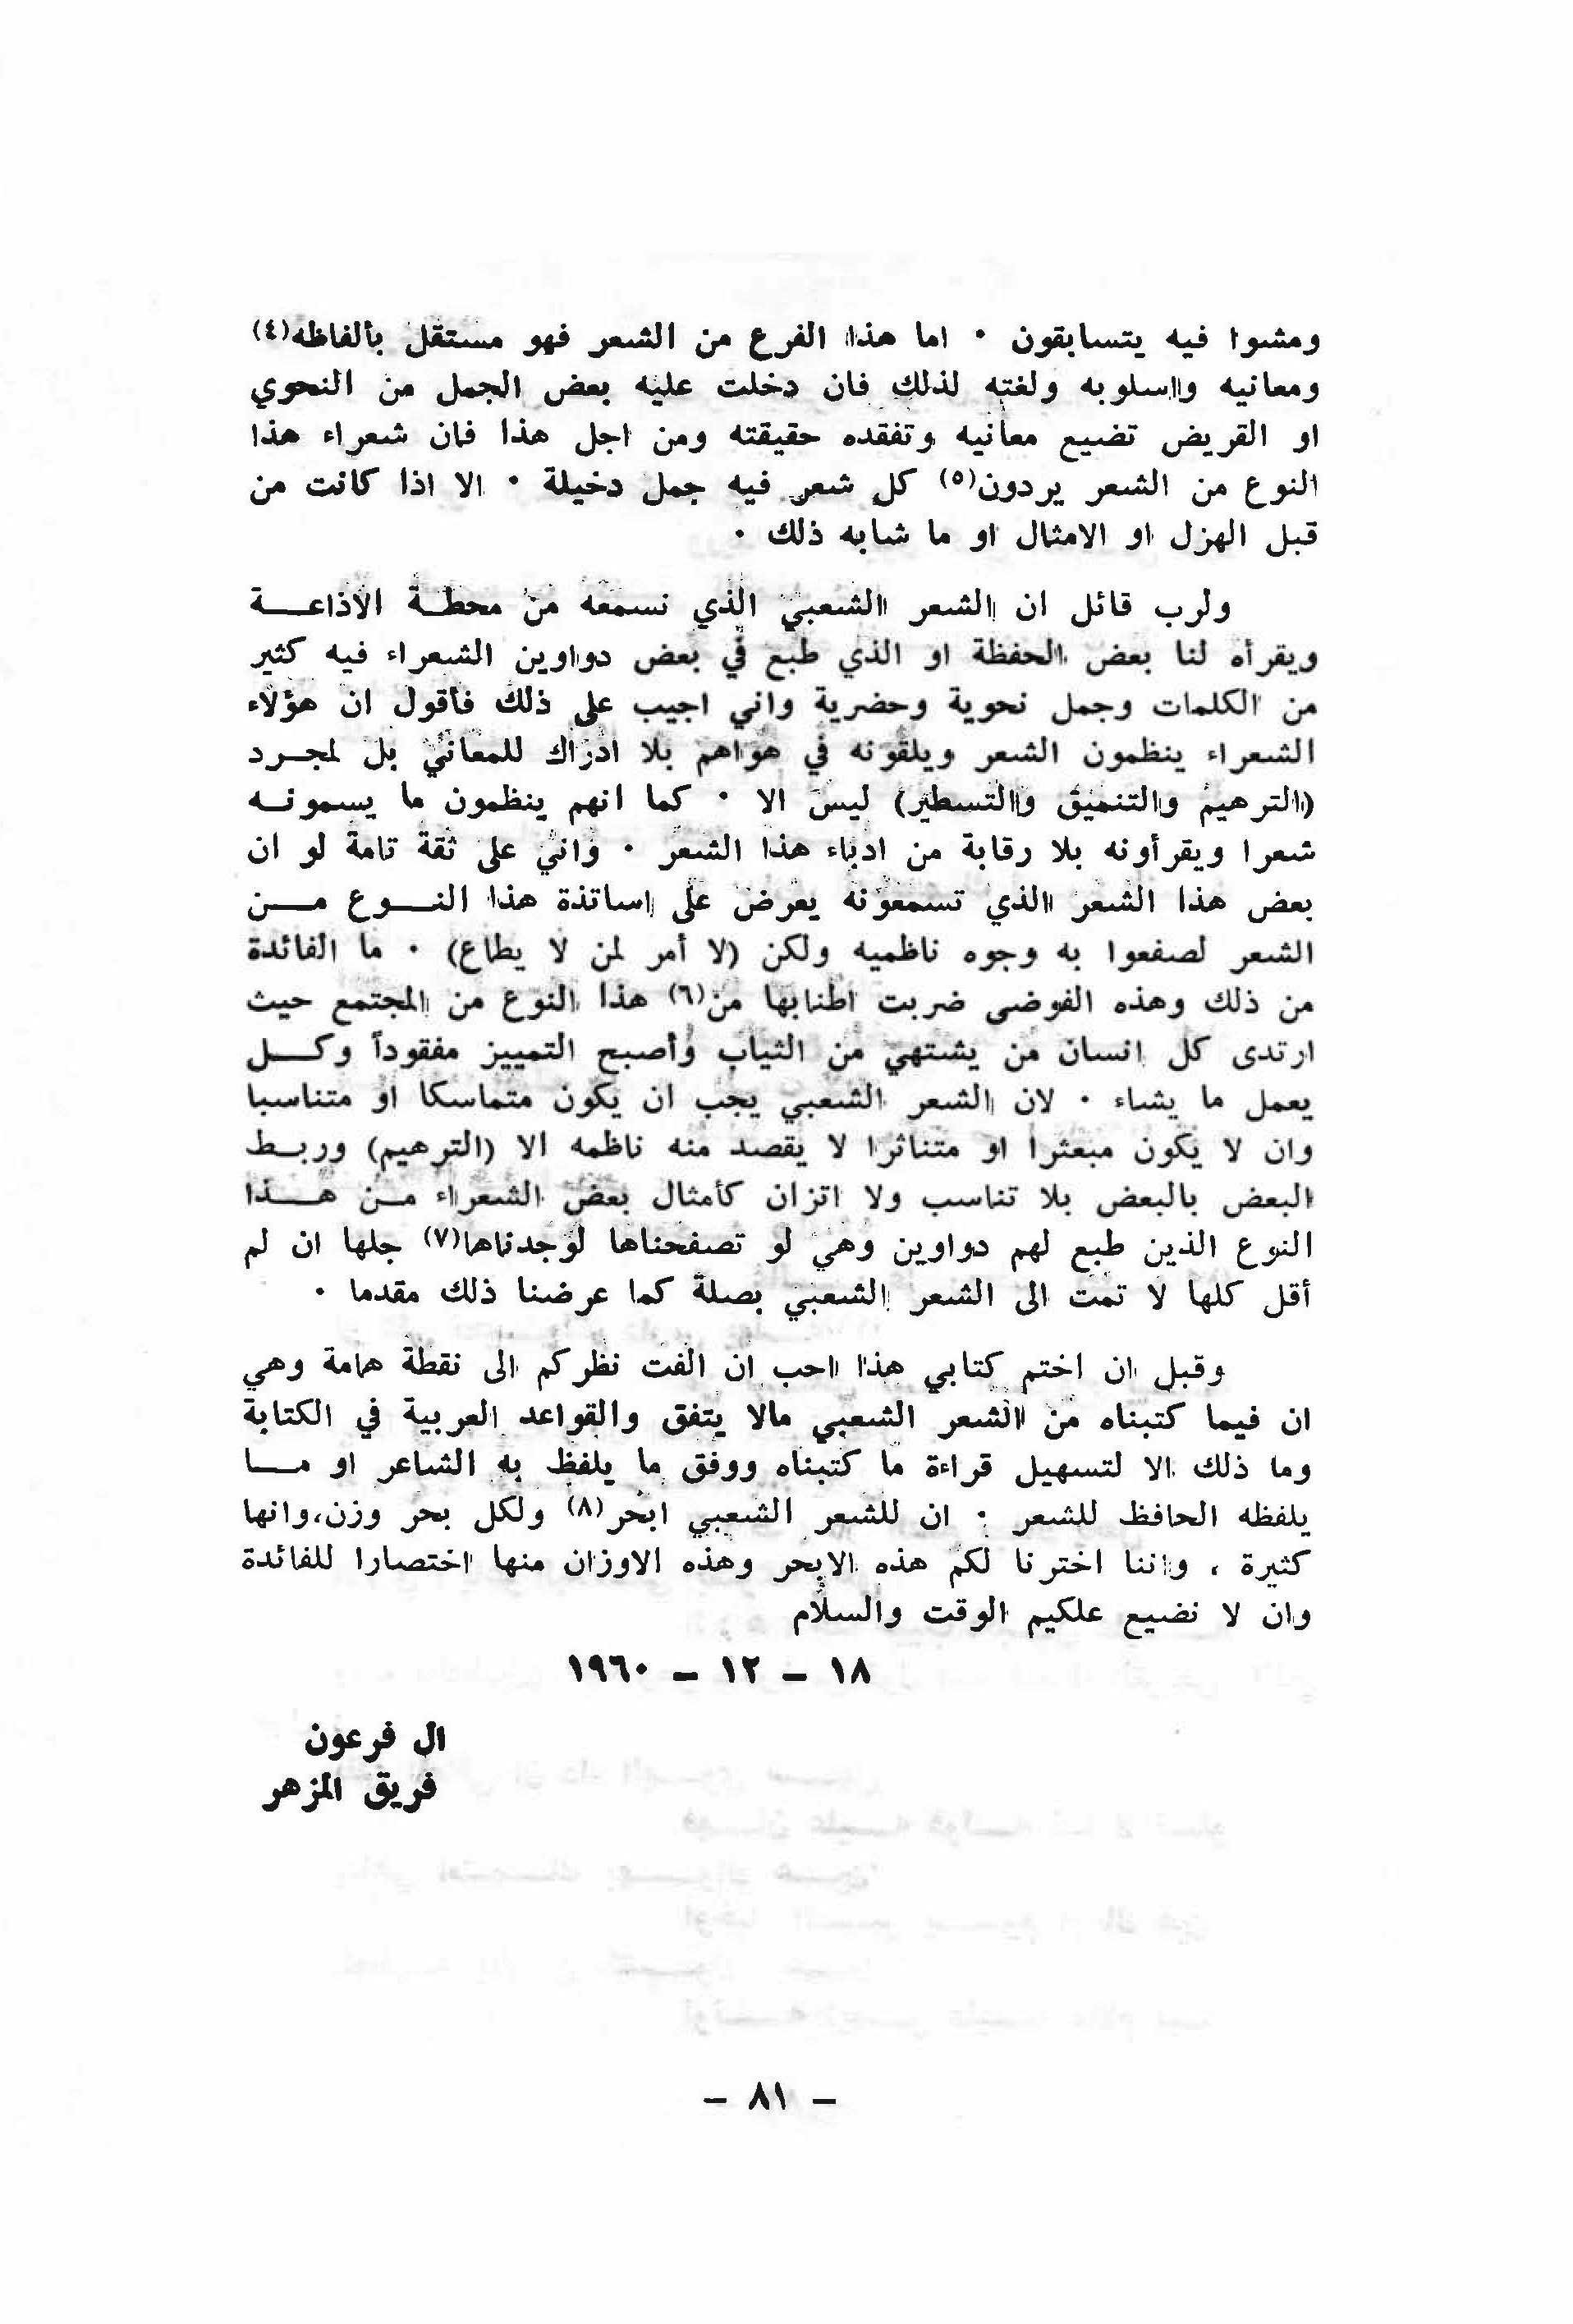 ومشوا فيه يتسابقون . اما هذا الفرع من الشعر فهو مستقل بألفاظه(٤)
ومعانيه واسلوبه ولغته لذلك فان دخلت عليه بعض الجمل من النحوي
او القريض تضيع معانيه وتفقده حقيقته ومن اجل هذا فان شعراء هذا
النوع من الشعر يردون(٥) كل شعر فيه جمل دخيلة . الا اذا كانت من
قبل الهزل او الامثال او ما شابه ذلك .
ولرب قائل ان الشعر الشعبي الذي نسمعه من محطة الاذاعة
ويقرأه لنا بعض الحفظة او الذي طبع في بعض دواوين الشعراء فيه كثير
من الكلمات وجمل نحوية وحضرية واني اجيب على ذلك فأقول ان هؤلاء
الشعراء ينظمون الشعر ويلقونه في هواهم بلا ادراك للمعاني بل لمجرد
(الترهيم والتنميق والتسطير) ليس الا . كما انهم ينظمون ما يسمونه
شعرا ويقرأونه بلا رقابة من ادباء هذا الشعر . واني على ثقة تامة لو ان
بعض هذا الشعر الذي تسمعونه يعرض على اساتذة هذا النوع من
الشعر لصفعوا به وجوه ناظميه ولكن (لا أمر لمن لا يطاع) . ما الفائدة
من ذلك وهذه الفوضى ضربت اطنابها من(٦) هذا النوع من المجتمع حيث
ارتدى كل انسان من يشتهي من الثياب وأصبح التمييز مفقوداً وكل
يعمل ما يشاء . لان الشعر الشعبي يجب ان يكون متماسكا او متناسبا
وان لا يكون مبعثرا او متناثرا لا يقصد منه ناظمه الا (الترهيم) وربط
البعض بالبعض بلا تناسب ولا اتزان كأمثال بعض الشعراء من هذا
النوع الذين طبع لهم دواوين وهي لو تصفحناها لوجدناها(٧) جلها ان لم
أقل كلها لا تمت الى الشعر الشعبي بصلة كما عرضنا ذلك مقدما .
وقبل ان اختم كتابي هذا احب ان الفت نظركم الى نقطة هامة وهي
ان فيما كتبناه من الشعر الشعبي مالا يتفق والقواعد العربية في الكتابة
وما ذلك الا لتسهيل قراءة ما كتبناه ووفق ما يلفظ به الشاعر او ما
يلفظه الحافظ للشعر . ان للشعر الشعبي ابحر(٨) ولكل بحر وزن،وانها
كثيرة ، واننا اخترنا لكم هذه الابحر وهذه الاوزان منها اختصارا للفائدة
وان لا نضيع علكيم الوقت والسلام
١٨ – ١٢ – ١٩٦٠
ال فرعون
فريق المزهر
– ٨١ –